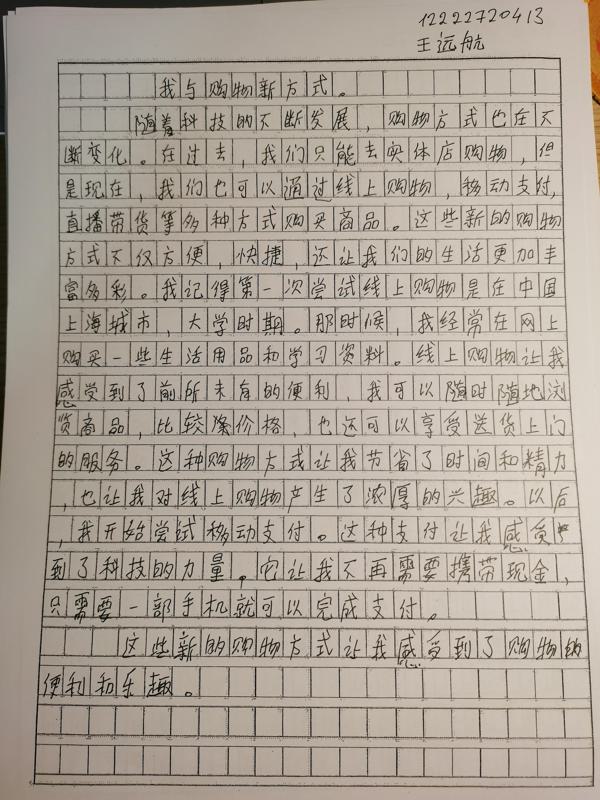 12222720413
王远航
我与购物新方式。
随着科技的不断发展，购物方式也在不
断变化。在过去，我们只能去实体店购物，但
是现在，我们也可以通过线上购物，移动支付，
直播带货等多种方式购买商品。这些新的购物
方式不仅方便，快捷，还让我们的生活更加丰
富多彩。我记得第一次尝试线上购物是在中国
上海城市，大学时期。那时候，我经常在网上
购买一些生活用品和学习资料。线上购物让我
感受到了前所未有的便利，我可以随时随地浏
览商品，比较价格，也还可以享受送货上门
的服务。这种购物方式让我节省了时间和精力
，也让我对线上购物产生了浓厚的兴趣。以后
，我开始尝试移动支付。这种支付让我感受
到了科技的力量。它让我不再需要携带现金，
只需要一部手机就可以完成支付。
这些新的购物方式让我感受到了购物的
便利和乐趣。